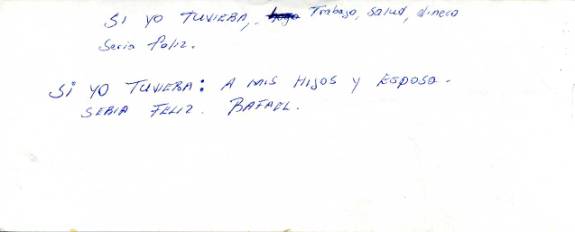 SI YO TUVIERA, Trabajo, Salud, dinero
Seria feliz.
SI YO TUVIERA: A MIS HIJOS Y ESPOSA.
SERIA FELIZ. RAFAEL.